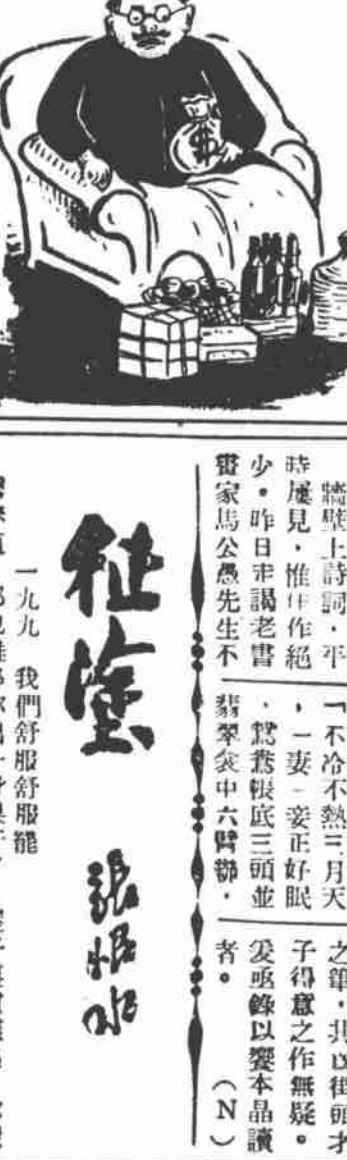 $
牆壁上詩詞,平
時屢見,惟佳作絕
少。昨日走謁老書
畫家馬公愚先生不
「不冷不熱三月天
,一妻一妾正好眠
、鴛鴦帳底三頭並
翡翠衾中六臂聯,
之筆,其
街頭才
子得意之作無疑。
爰亟錄以饗本晶讀
者。 (N)
征塗 張恨水
一九九 我們舒服舒服罷